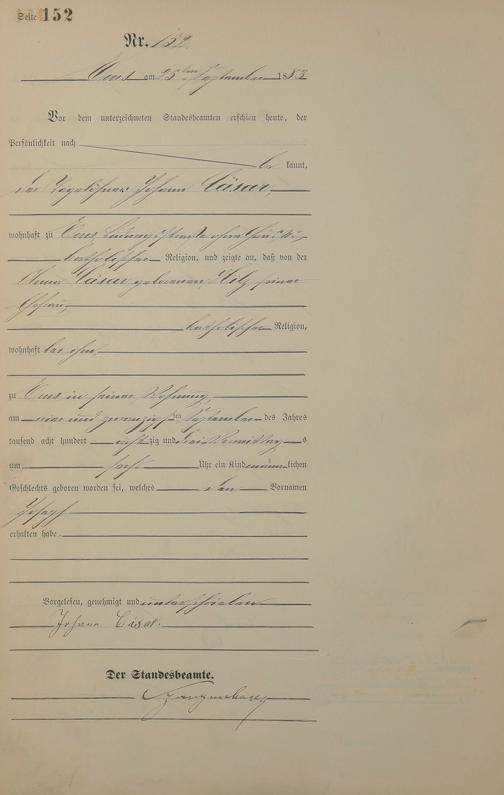 Seite 152
Nr. 152
Ems am 25ten September 1883
Vor dem unterzeichneten Standesbeamten erschien heute, der
Persönlichkeit nach
be kannt,
der Tagelöhner Johann Cäsar,
wohnhaft zu Ems, ohne
katholischer Religion, und zeigte an, daß von der
Anna Cäsar geborenen seiner
Ehefrau,
katholischer Religion,
wohnhaft bei ihm,
zu Ems in seiner Wohnung,
am vier und zwanzigsten September des Jahres
tausend acht hundert acht zig und drei Vormittags
um sechs Uhr ein Kind männlichen
Geschlechts geboren worden sei, welches den Vornamen
Joseph
erhalten habe
Vorgelesen, genehmigt und unterschrieben
Johann Cäsar.
Der Standesbeamte.